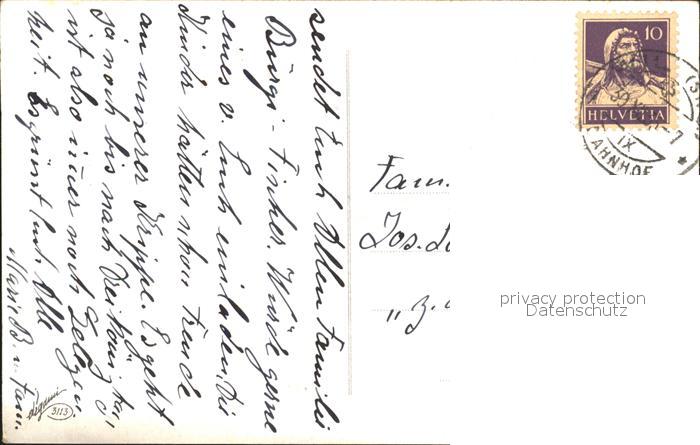 sendet Euch Allen Familie
Bürgi-Fischer. Würde gerne
eines v. Euch einladen. Die
Kinder hätten schon Freude
an unserer Krippe. Es geht
ja noch bis nach Dreikönig, da
ist also immer noch
Zeit. Es grüsst Euch Alle
Marie B. u. Fam.
3113
Fam.
Jos.
"z.
10
HELVETIA
IX
BAHNHOF
privacy protection
Datenschutz